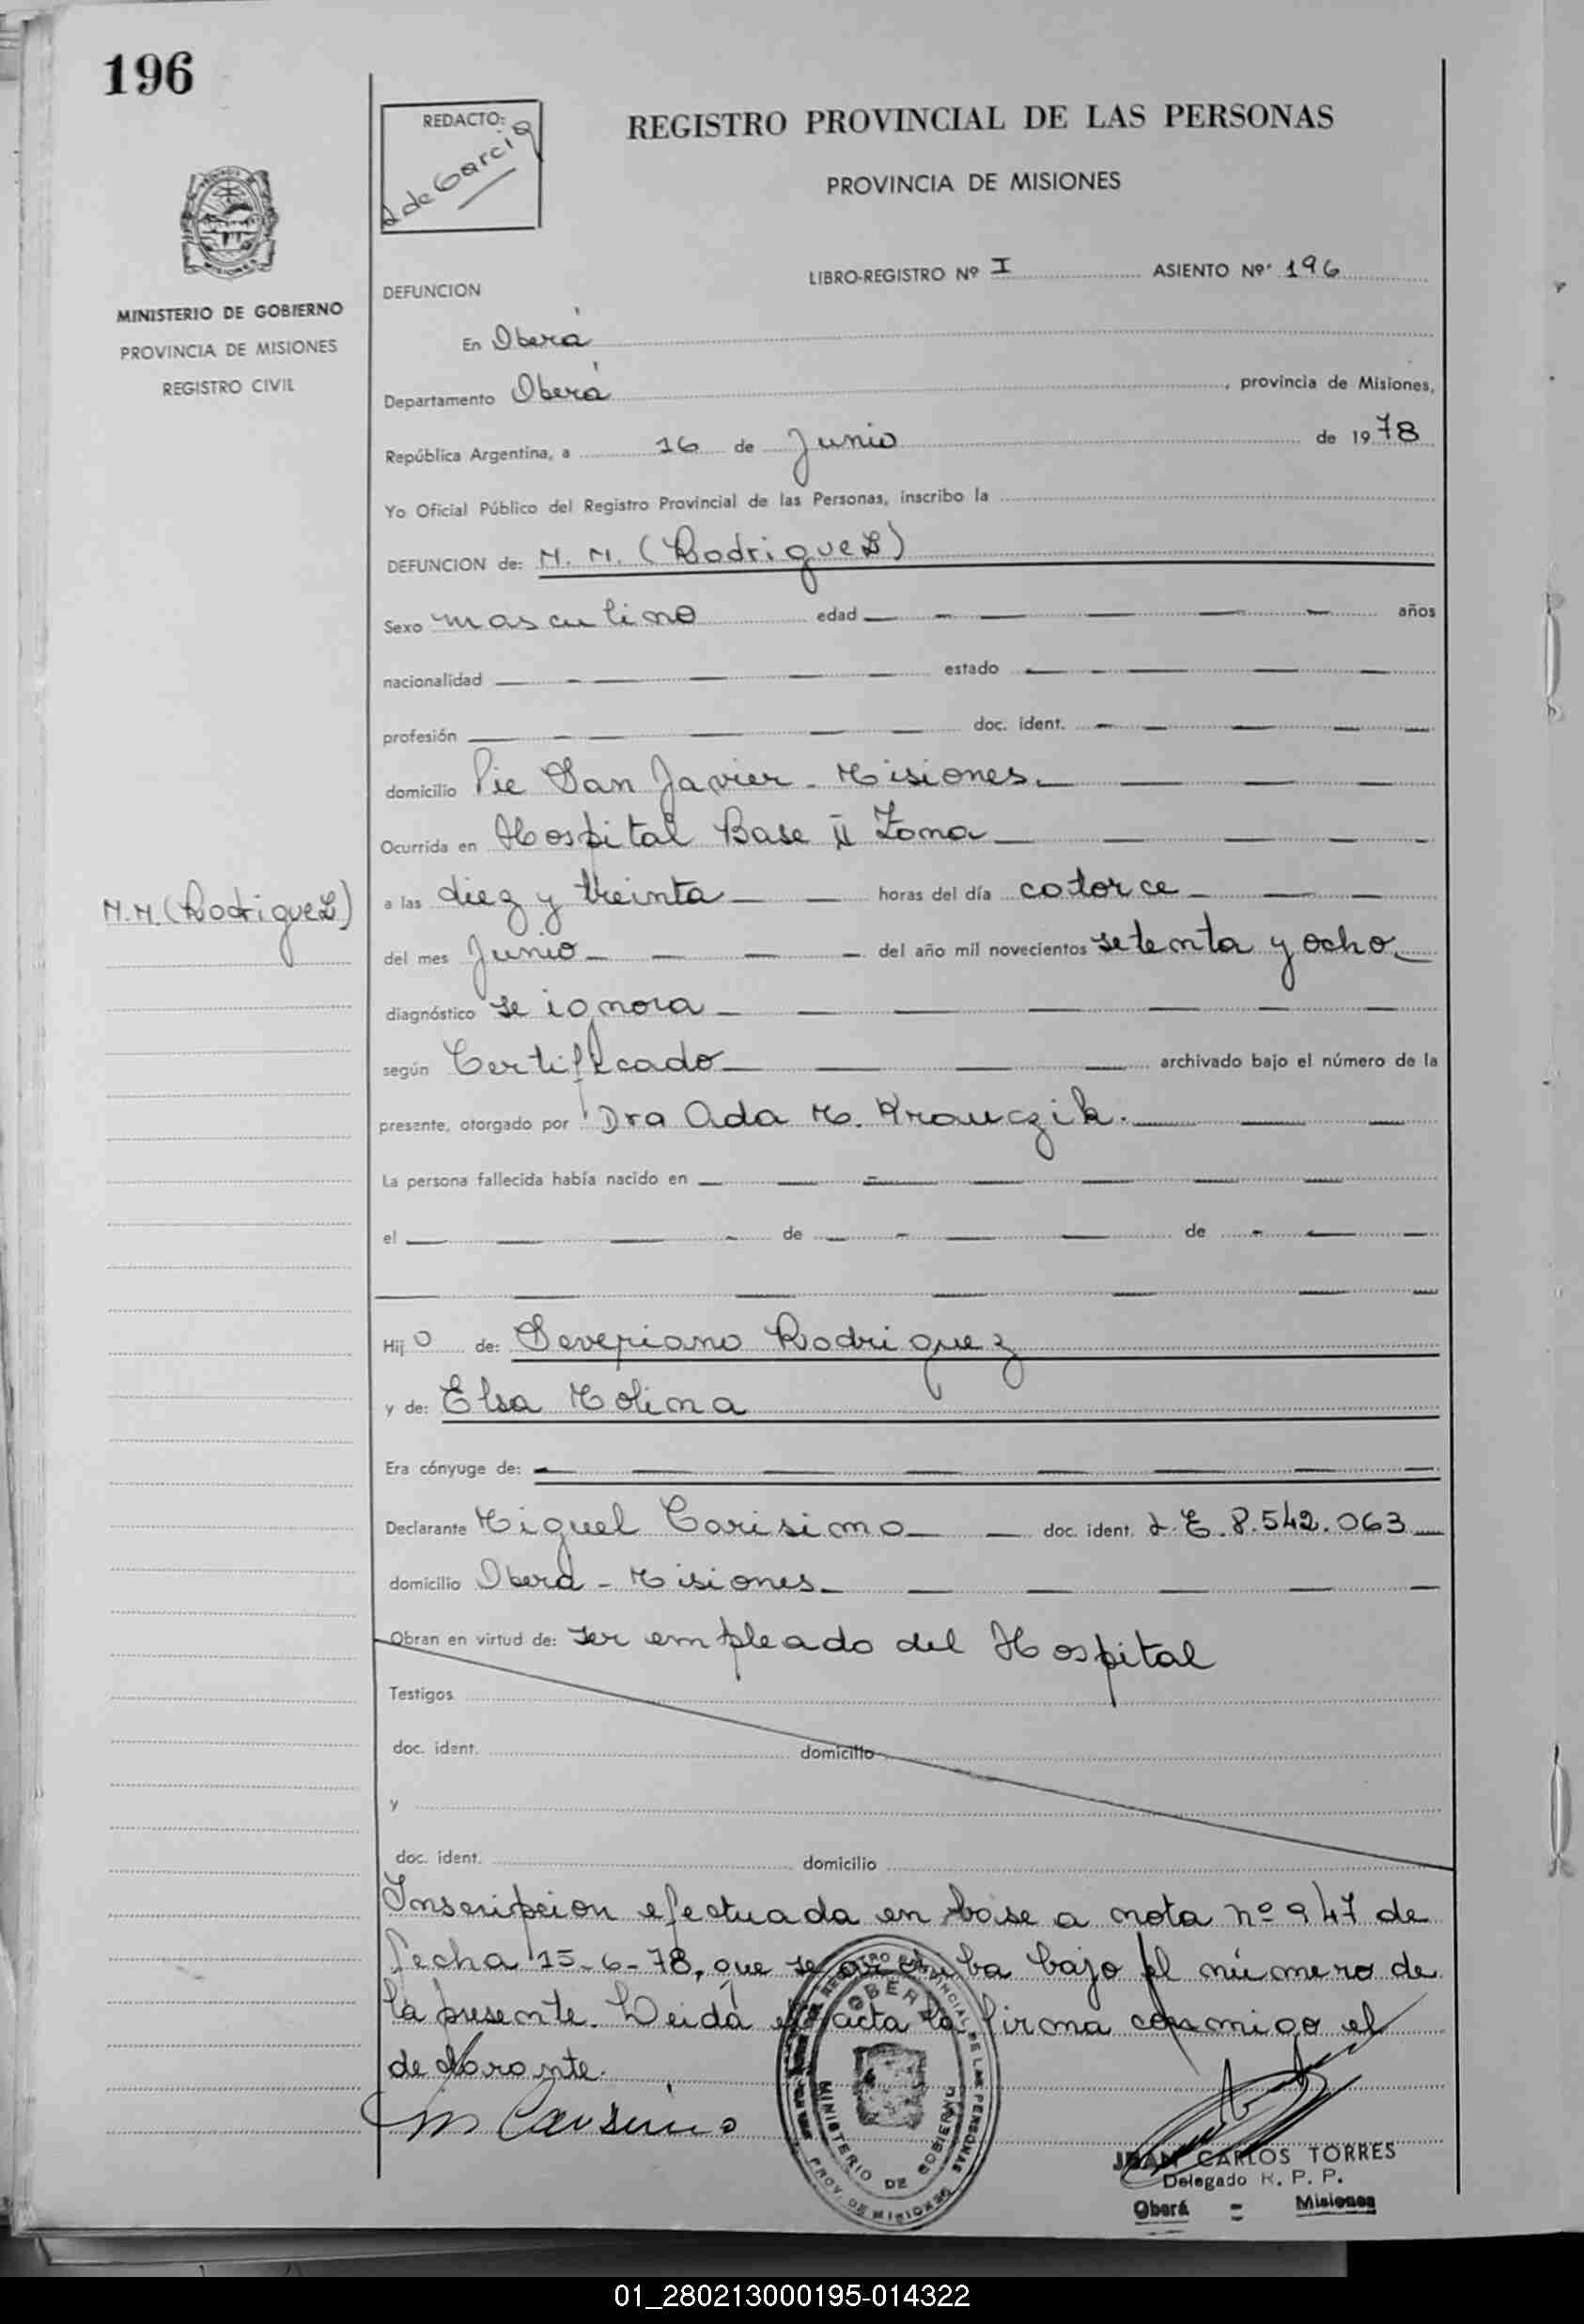 196
REDACTO:
de Garcia
REGISTRO PROVINCIAL DE LAS PERSONAS
PROVINCIA DE MISIONES
MINISTERIO DE GOBIERNO
PROVINCIA DE MISIONES
REGISTRO CIVIL
DEFUNCION
LIBRO-REGISTRO Nº I ASIENTO Nº 196
En Oberá
Departamento Oberá, provincia de Misiones,
República Argentina, a 16 de Junio de 1978
Yo Oficial Público del Registro Provincial de las Personas, inscribo la
DEFUNCION de: N.N. (Rodriguez)
Sexo masculino edad años
nacionalidad estado
profesión doc. ident.
domicilio Pje San Javier - Misiones.
Ocurrida en Hospital Base II Zona
N.N. (Rodriguez)
a las diez y treinta horas del día catorce
del mes Junio del año mil novecientos setenta y ocho
diagnóstico se ignora
según Certificado archivado bajo el número de la
presente, otorgado por Dra Ada M.
La persona fallecida había nacido en
el de de
Hijo de: Severiano Rodriguez
y de: Elsa Molina
Era cónyuge de:
Declarante Miguel Carisimo doc. ident. L.E. 8.542.063
domicilio Oberá - Misiones
Obran en virtud de: ser empleado del Hospital
Testigos
doc. ident. domicilio
y
doc. ident. domicilio
Inscripcion efectuada en base a nota nº 947 de
fecha 15-6-78, que se archiva bajo el número de
la presente. Leida el acta la firma conmigo el
declarante.
REGISTRO PROVINCIAL DE LAS PERSONAS
OBERA
MINISTERIO DE GOBIERNO
PROV. DE MISIONES
JUAN CARLOS TORRES
Delegado R. P. P.
Oberá = Misiones
01_280213000195-014322